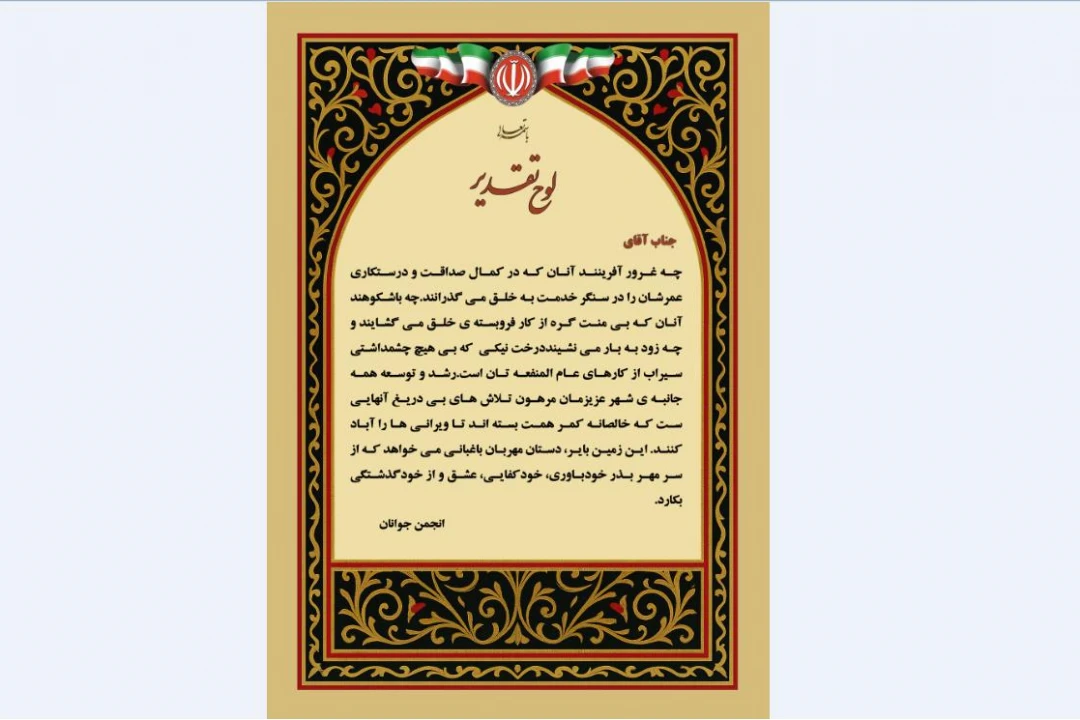 باسمه تعالی
لوح تقدیر
جناب آقای
چه غرور آفرینند آنان که در کمال صداقت و درستکاری
عمرشان را در سنگر خدمت به خلق می گذرانند.چه باشکوهند
آنان که بی منت گره از کار فروبسته ی خلق می گشایند و
چه زود به بار می نشینددرخت نیکی که بی هیچ چشمداشتی
سیراب از کارهای عام المنفعه تان است.رشد و توسعه همه
جانبه ی شهر عزیزمان مرهون تلاش های بی دریغ آنهایی
ست که خالصانه کمر همت بسته اند تا ویرانی ها را آباد
کنند. این زمین بایر، دستان مهربان باغبانی می خواهد که از
سر مهر بذر خودباوری، خودکفایی، عشق و از خودگذشتگی
بکارد.
انجمن جوانان